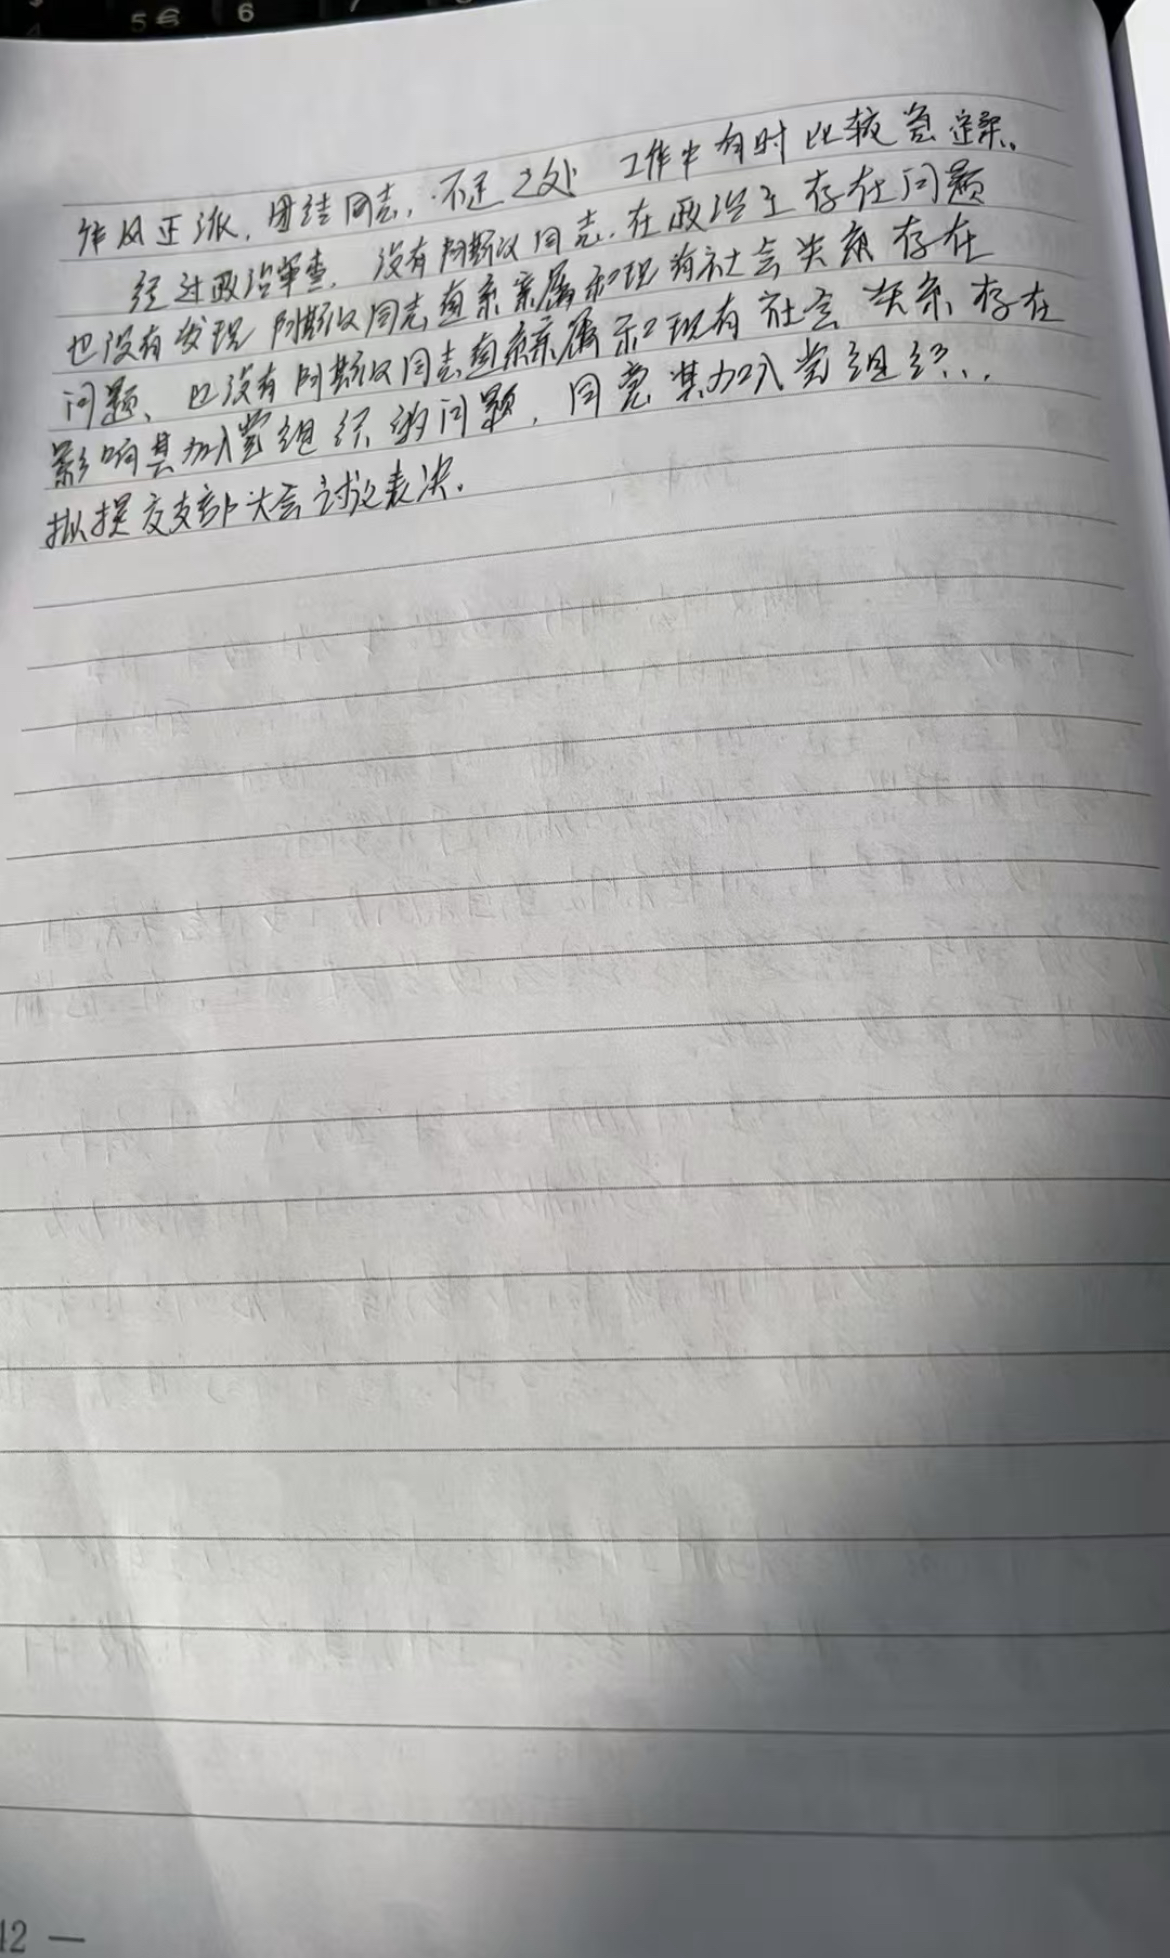 5€ 6 7
作风正派,团结同志,不足之处 工作中有时比较急躁。
经过政治审查,没有阿斯汉同志,在政治上存在问题
也没有发现阿斯汉同志直系亲属和现有社会关系存在
问题、也没有阿斯汉同志直系亲属和现有社会关系存在
影响其加入党组织的问题,同意其加入党组织..
拟提交支部大会讨论表决.
12 —